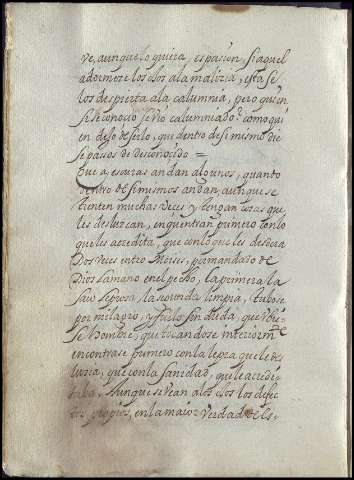 ve, aunque lo quiera, es pasion, si aquel
adormeze los ojos a la malizia, esta se
los despierta a la calumnia, pero quien
si se conocio se vio calumniado? como qui
en dejo de serlo, que dentro de si mismo die
se pasos de desconocido =
Que a escuras andan algunos, quanto
dentro de si mismos andan, aunque se
tienten muchas veces y tengan cosas que
les desluzcan, enquentran primero con lo
que les acredita, que con lo que les desdora
Dos veces entro Moises, por mandado de
Dios la mano en el pecho, la primera la
saco leprosa, la segunda limpia, tubose
por milagro, y fuelo sin duda, que
se hombre, que tentandose interiorm.te
encontrase primero con la lepra que le des
luzia, que con la sanidad, que le acredi
taba, Aunque se vean a los ojos los defec
tos propios, en la maior verdad de es-